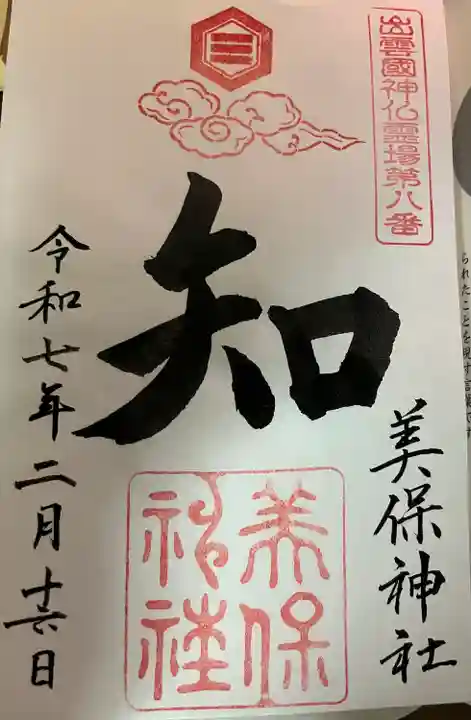 出雲國神仏霊場第八番
美保神社
知
美保
神社
令和七年二月十六日
られたことを現す言葉です